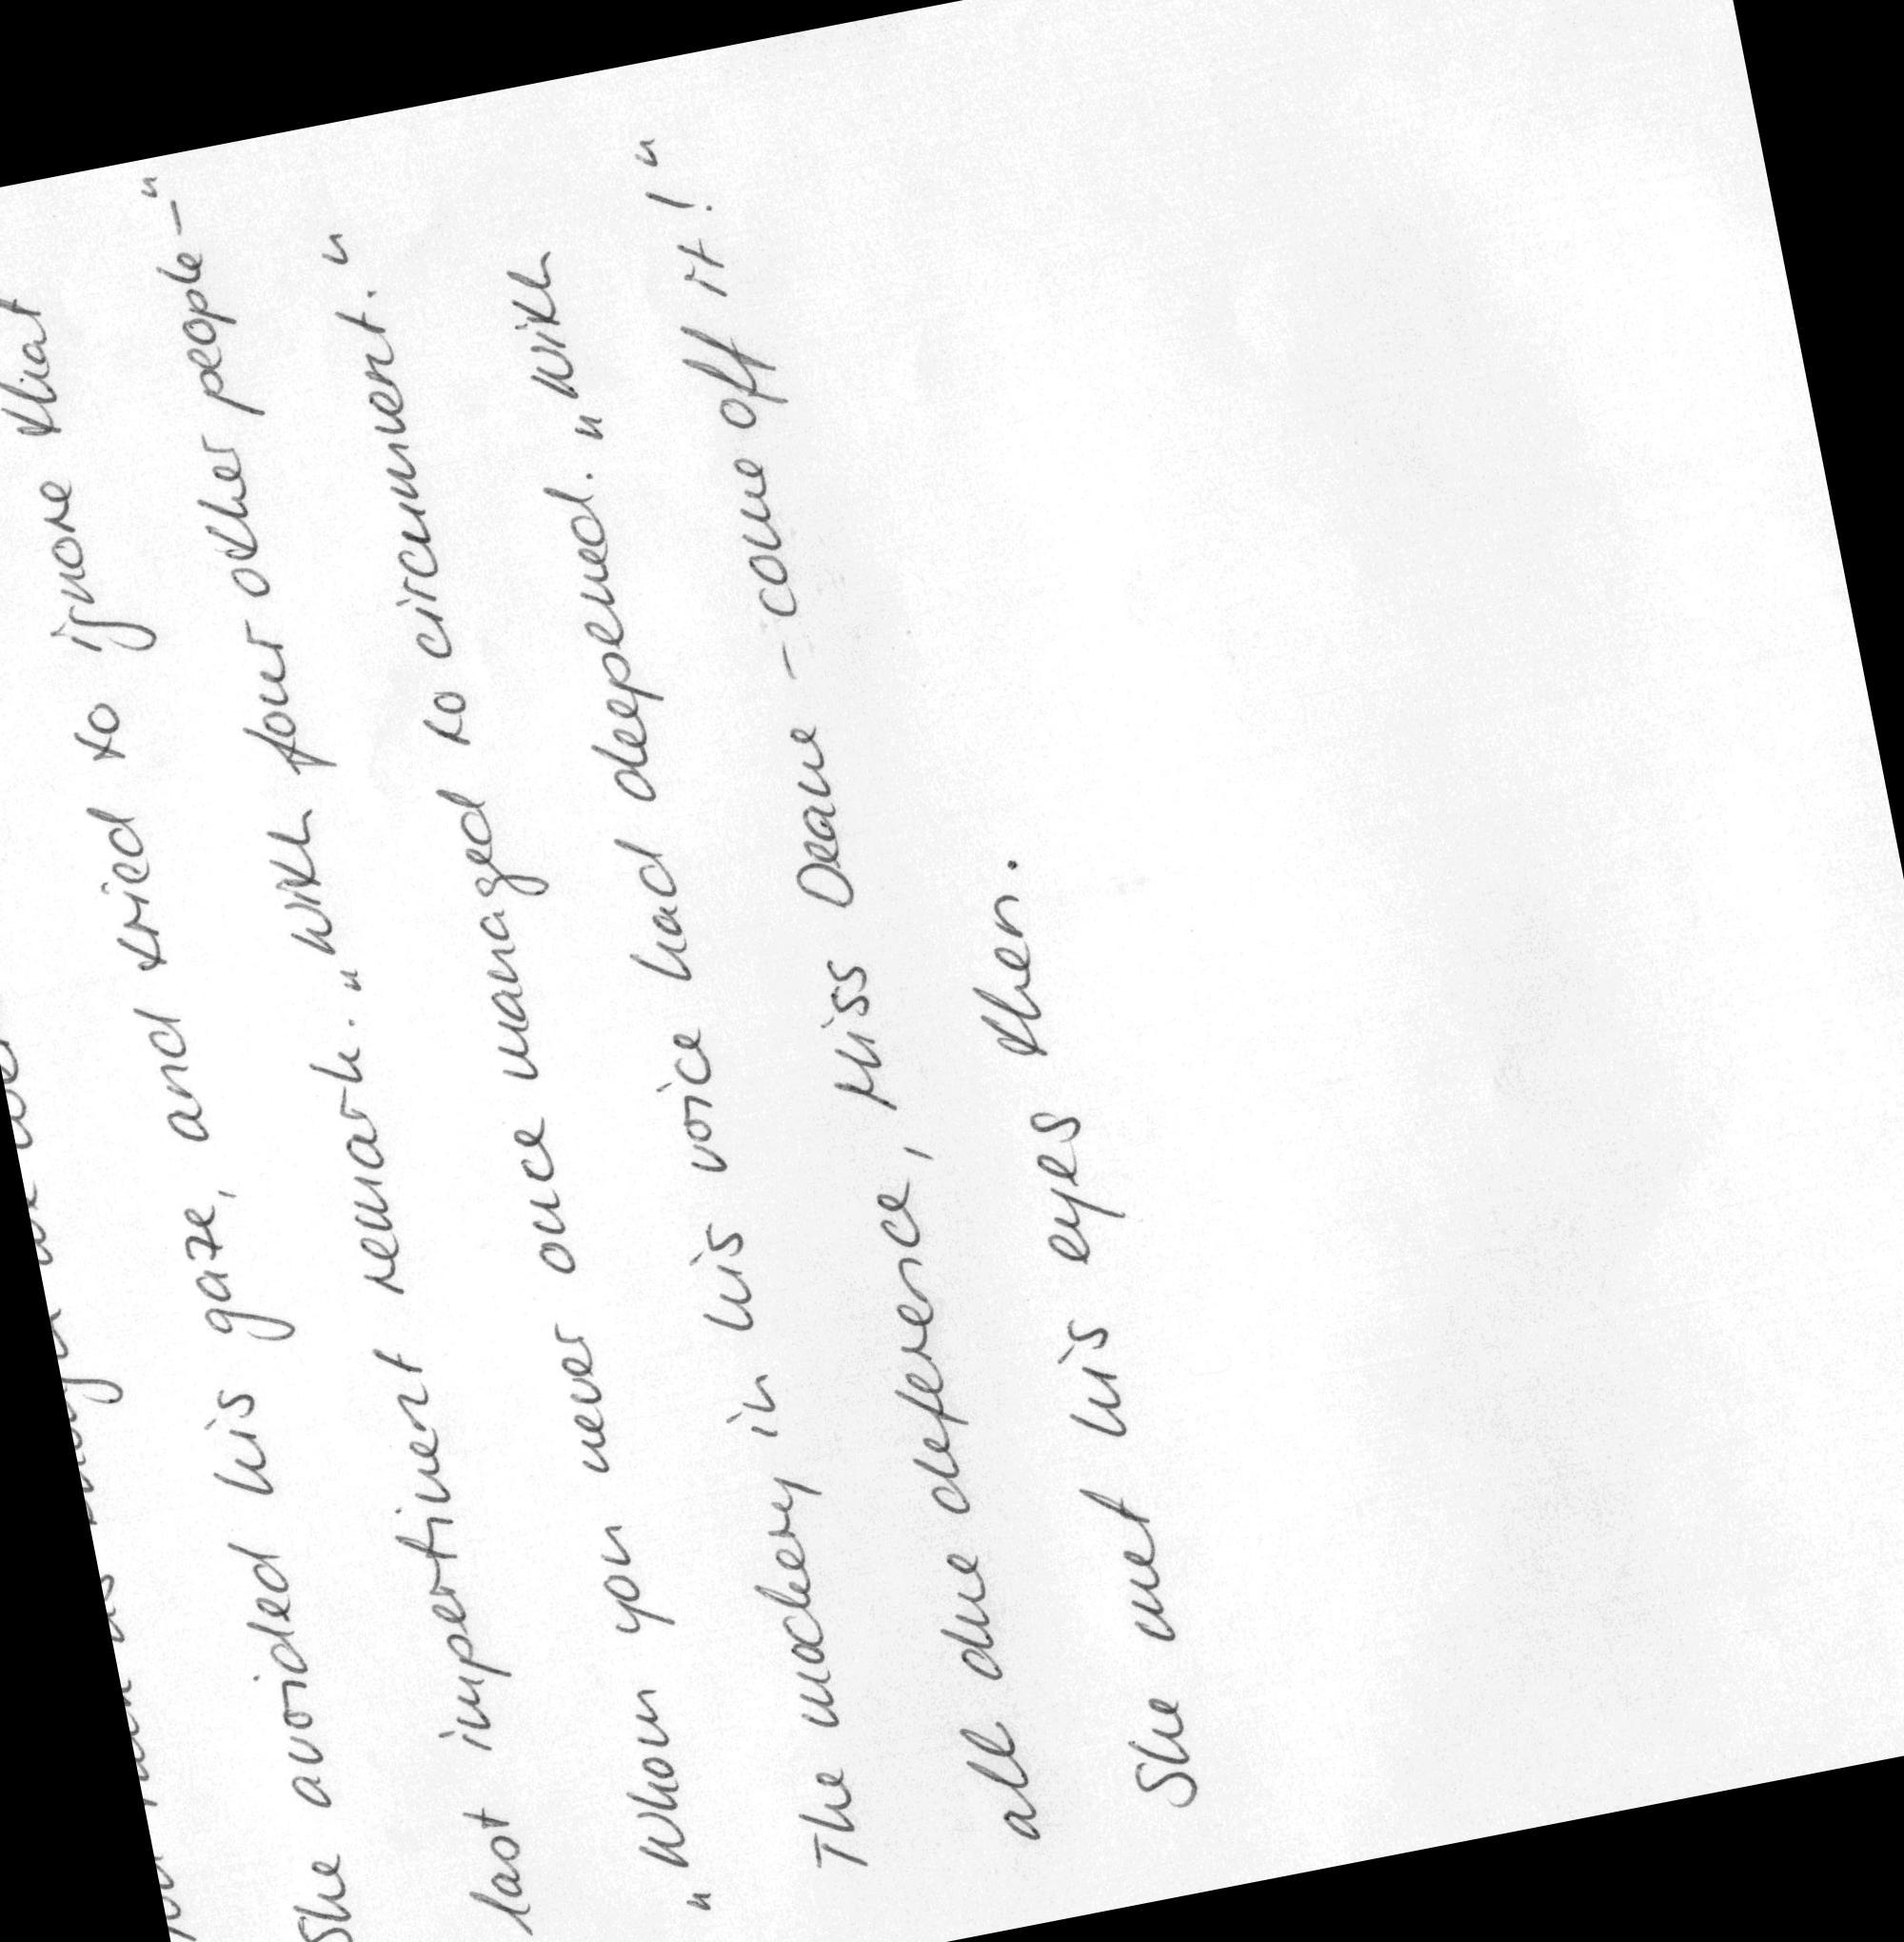 She avoided his gaze, and tried to ignore that
last impertinent remark. "With four other people –"
"Whom you never once managed to circumvent."
The mockery in his voice had deepened. "With
all due deference, Miss Deane – come off it!"
She met his eyes then.